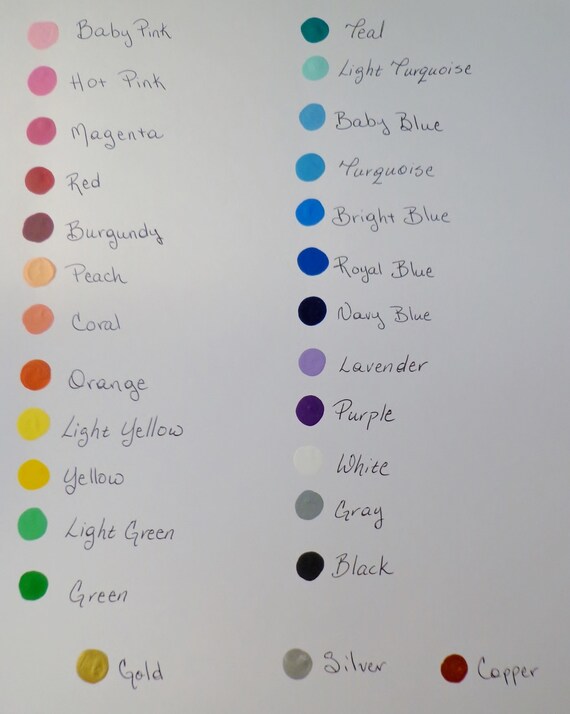 Baby Pink
Hot Pink
Magenta
Red
Burgundy
Peach
Coral
Orange
Light Yellow
Yellow
Light Green
Green
Teal
Light Turquoise
Baby Blue
Turquoise
Bright Blue
Royal Blue
Navy Blue
Lavender
Purple
White
Gray
Black
Gold
Silver
Copper